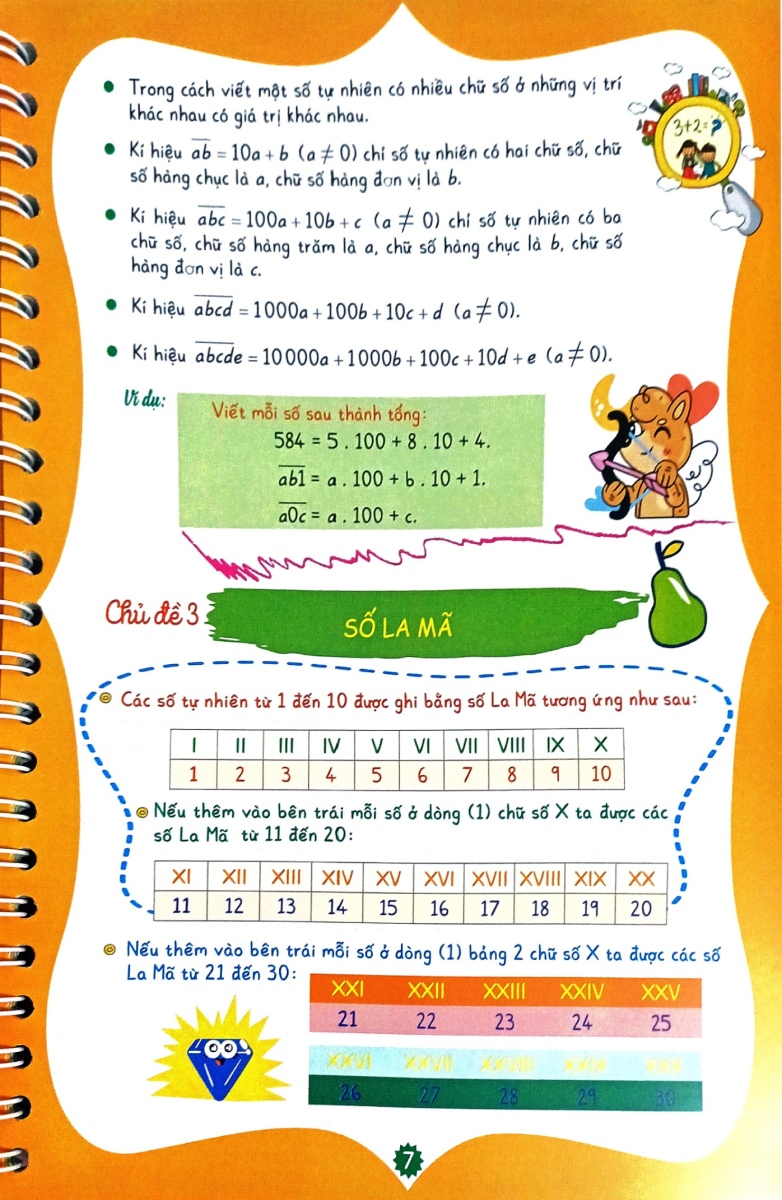 3+2=?
• Trong cách viết một số tự nhiên có nhiều chữ số ở những vị trí
khác nhau có giá trị khác nhau.
• Kí hiệu \overline{ab} = 10a + b (a ≠ 0) chỉ số tự nhiên có hai chữ số, chữ
số hàng chục là a, chữ số hàng đơn vị là b.
• Kí hiệu \overline{abc} = 100a + 10b + c (a ≠ 0) chỉ số tự nhiên có ba
chữ số, chữ số hàng trăm là a, chữ số hàng chục là b, chữ số
hàng đơn vị là c.
• Kí hiệu \overline{abcd} = 1000a + 100b + 10c + d (a ≠ 0).
• Kí hiệu \overline{abcde} = 10000a + 1000b + 100c + 10d + e (a ≠ 0).
Ví dụ:
Viết mỗi số sau thành tổng:
584 = 5 . 100 + 8 . 10 + 4.
\overline{ab1} = a . 100 + b . 10 + 1.
\overline{a0c} = a . 100 + c.
Chủ đề 3
SỐ LA MÃ
Các số tự nhiên từ 1 đến 10 được ghi bằng số La Mã tương ứng như sau:
I II III IV V VI VII VIII IX X
1 2 3 4 5 6 7 8 9 10
Nếu thêm vào bên trái mỗi số ở dòng (1) chữ số X ta được các
số La Mã từ 11 đến 20:
XI XII XIII XIV XV XVI XVII XVIII XIX XX
11 12 13 14 15 16 17 18 19 20
Nếu thêm vào bên trái mỗi số ở dòng (1) bảng 2 chữ số X ta được các số
La Mã từ 21 đến 30:
XXI XXII XXIII XXIV XXV
21 22 23 24 25
XXVI XXVII XXVIII XXIX XXX
26 27 28 29 30
7